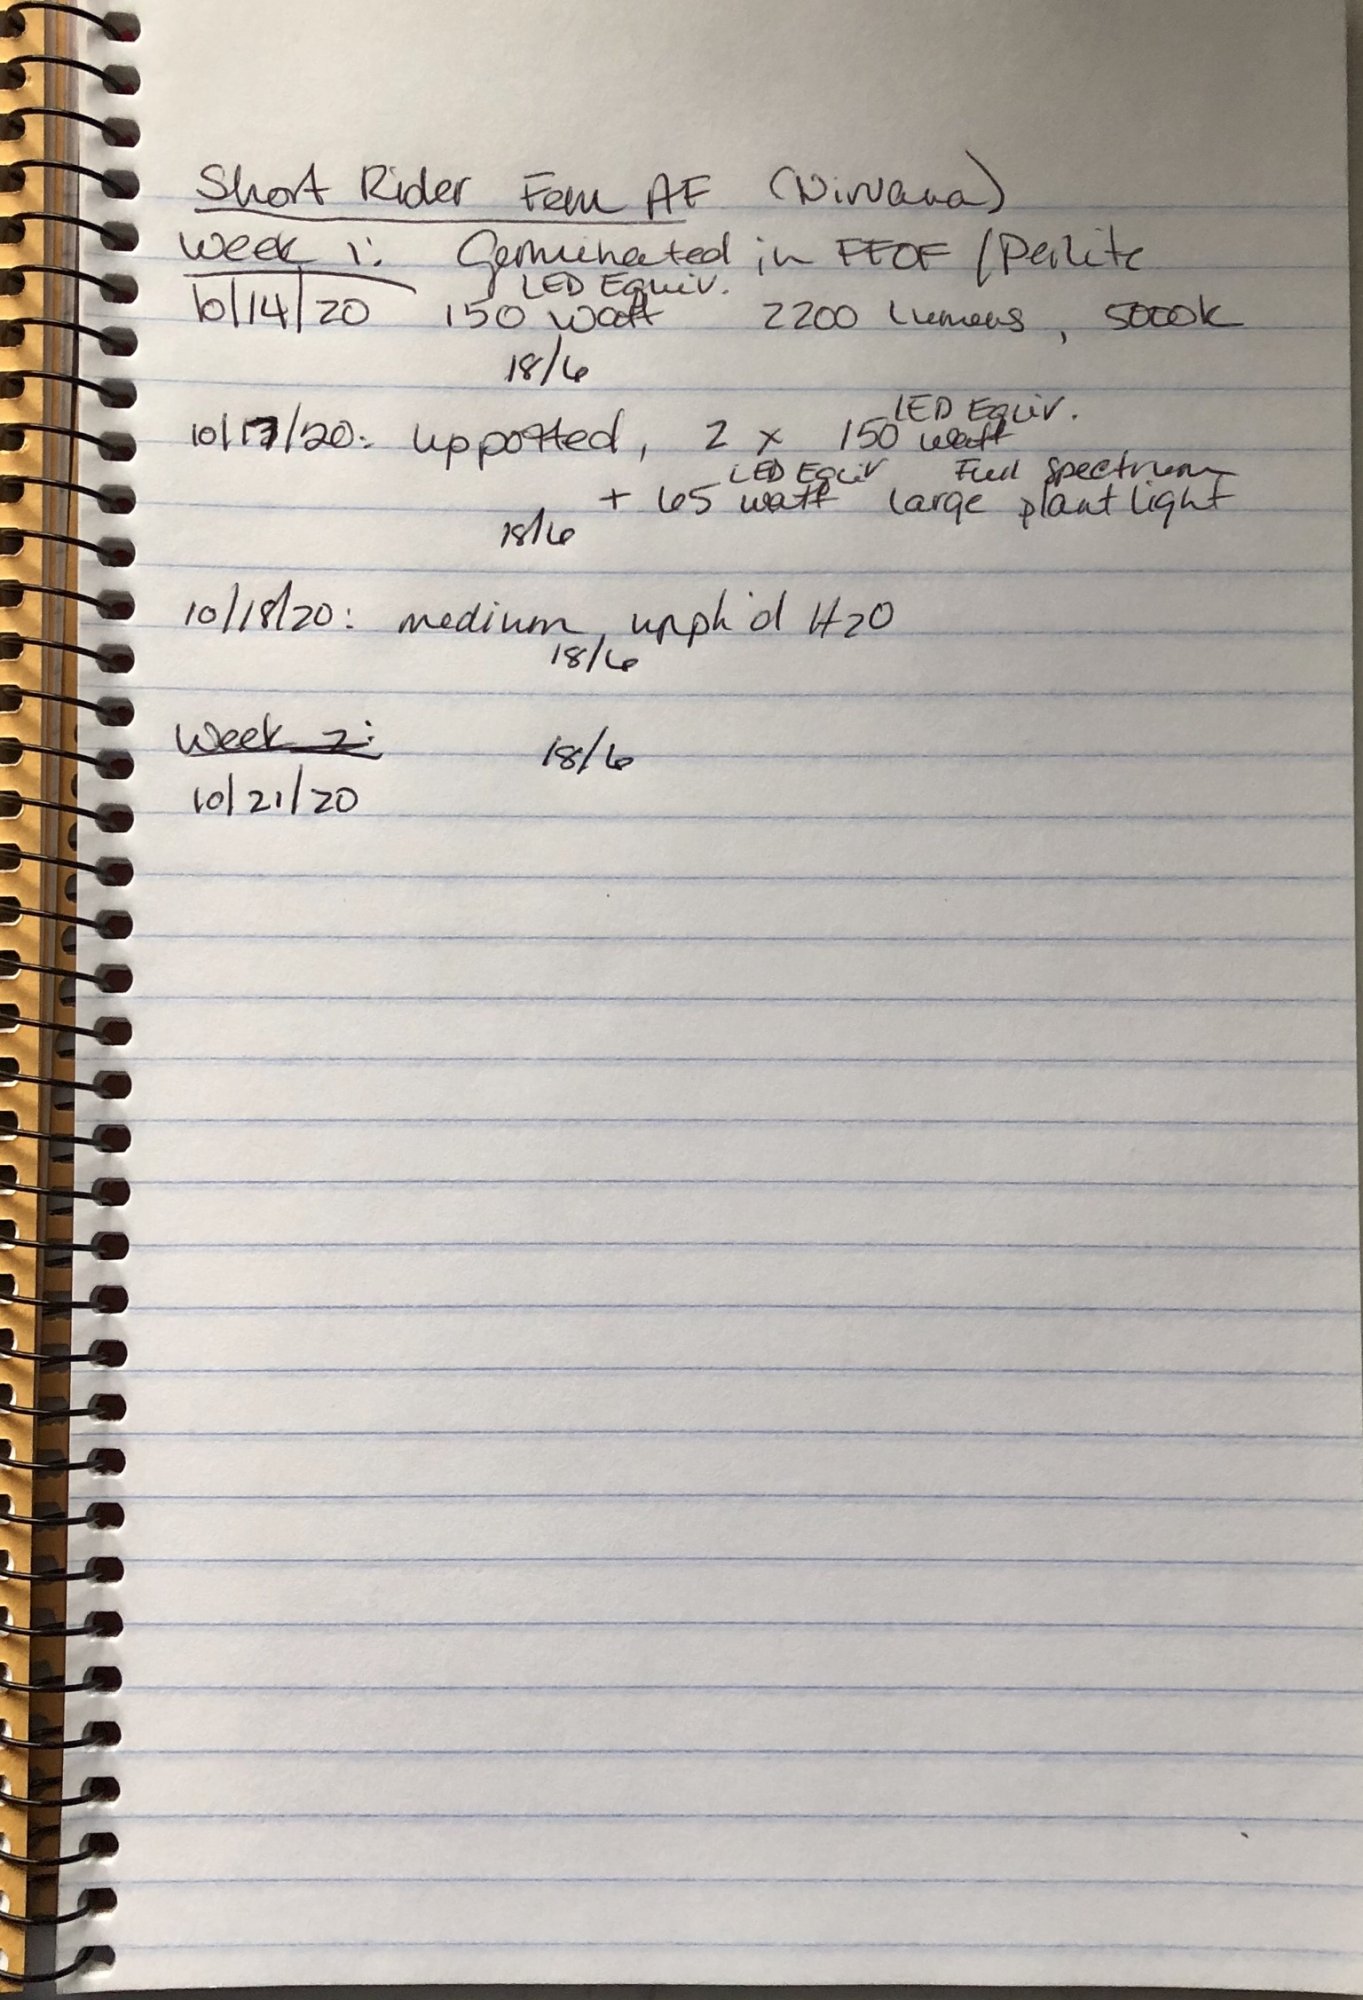 Short Rider Fem AF (Nirvana)
Week 1: Germinated in FFOF / Perlite
LED Equiv.
10/14/20 150 watt 2200 Lumens, 5000k
18/6
LED Equiv.
10/17/20: uppotted, 2 x 150 watt
LED Equiv Full Spectrum
+ 65 watt large plant light
18/6
10/18/20: medium, unph'd H20
18/6
Week 2: 18/6
10/21/20